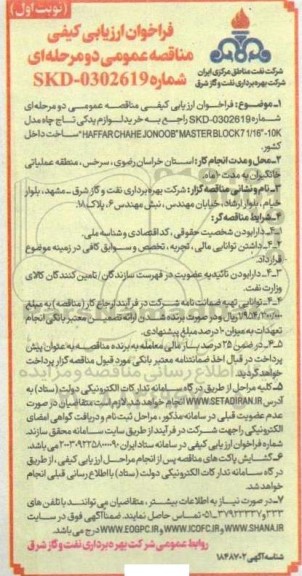 (نوبت اول)
فراخوان ارزیابی کیفی
مناقصه عمومی دو مرحله ای
شماره SKD-0302619
شرکت نفت مناطق مرکزی ایران
شرکت بهره برداری نفت و گاز شرق
۱-موضوع: فراخوان ارزیابی کیفی مناقصه عمومی دو مرحله ای
شماره SKD-0302619 راجع به خرید لوازم یدکی تاج چاه مدل
"HAFFAR CHAHE JONOOB" MASTER BLOCK 7 1/16"-10K ساخت داخل
کشور.
۲-محل و مدت انجام کار: استان خراسان رضوی، سرخس، منطقه عملیاتی
خانگیران به مدت ۱۰ ماه.
۳-نام و نشانی مناقصه گزار: شرکت بهره برداری نفت و گاز شرق - مشهد، بلوار
خیام، بلوار ارشاد، خیابان مهندس، نبش مهندس ۶، پلاک ۱۸.
۴-شرایط مناقصه گر:
۴-۱-دارا بودن شخصیت حقوقی، کد اقتصادی و شناسه ملی.
۴-۲-داشتن توانایی مالی، تجربه، تخصص و سوابق کافی در زمینه موضوع
قرارداد.
۴-۳-دارا بودن تائیدیه عضویت در فهرست سازندگان / تامین کنندگان کالای
وزارت نفت.
۴-۴-توانایی تهیه ضمانت نامه شرکت در فرآیند ارجاع کار (مناقصه) به مبلغ
ریال و در صورت برنده شدن ارائه تضمین معتبر بانکی انجام
تعهدات به میزان ۱۰ درصد مبلغ پیشنهادی.
۴-۵-در ضمن ۲۵ درصد ریالی معامله به برنده مناقصه به عنوان پیش
پرداخت در قبال اخذ ضمانتنامه معتبر بانکی مورد قبول مناقصه گزار پرداخت
خواهد گردید.
۵-کلیه مراحل از طریق درگاه سامانه تدارکات الکترونیکی دولت (ستاد) به
آدرس WWW.SETADIRAN.IR انجام خواهد شد. لازم است متقاضیان در صورت
عدم عضویت قبلی در سامانه مذکور، مراحل ثبت نام و دریافت گواهی امضای
الکترونیکی را جهت شرکت در فرآیند از طریق سایت سامانه محقق سازند.
شماره فراخوان ارزیابی کیفی در سامانه ستاد ایران می باشد.
۶-گشایش پاکت های مناقصه پس از انجام مراحل ارزیابی کیفی، از طریق
درگاه سامانه تدارکات الکترونیکی دولت (ستاد) با اطلاع رسانی قبلی انجام
خواهد شد.
۷-در صورت نیاز به اطلاعات بیشتر، متقاضیان می توانند با تلفن های
تماس حاصل نمایند. ضمنا آگهی فوق در سایت
WWW.SHANA.IR و WWW.ICOFC.IR و WWW.EOGPC.IR درج می باشد.
روابط عمومی شرکت بهره برداری نفت و گاز شرق
شناسه آگهی ۱۸۴۸۷۰۲